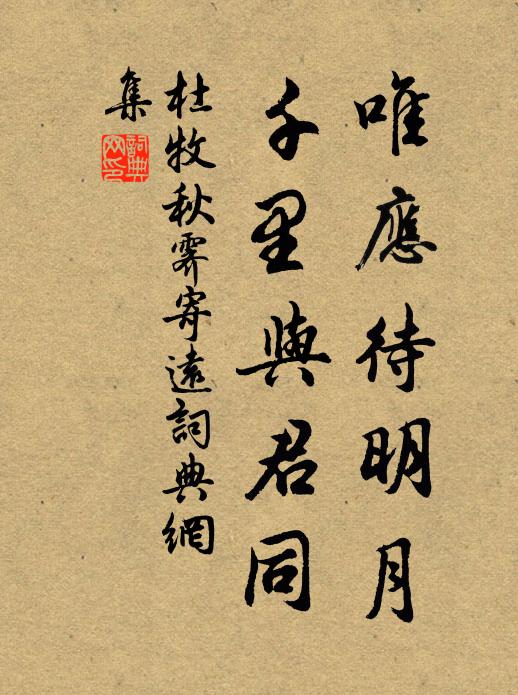 唯應待明月
千里與君同
杜牧秋霽寄遠詞典網
集
詞典網印